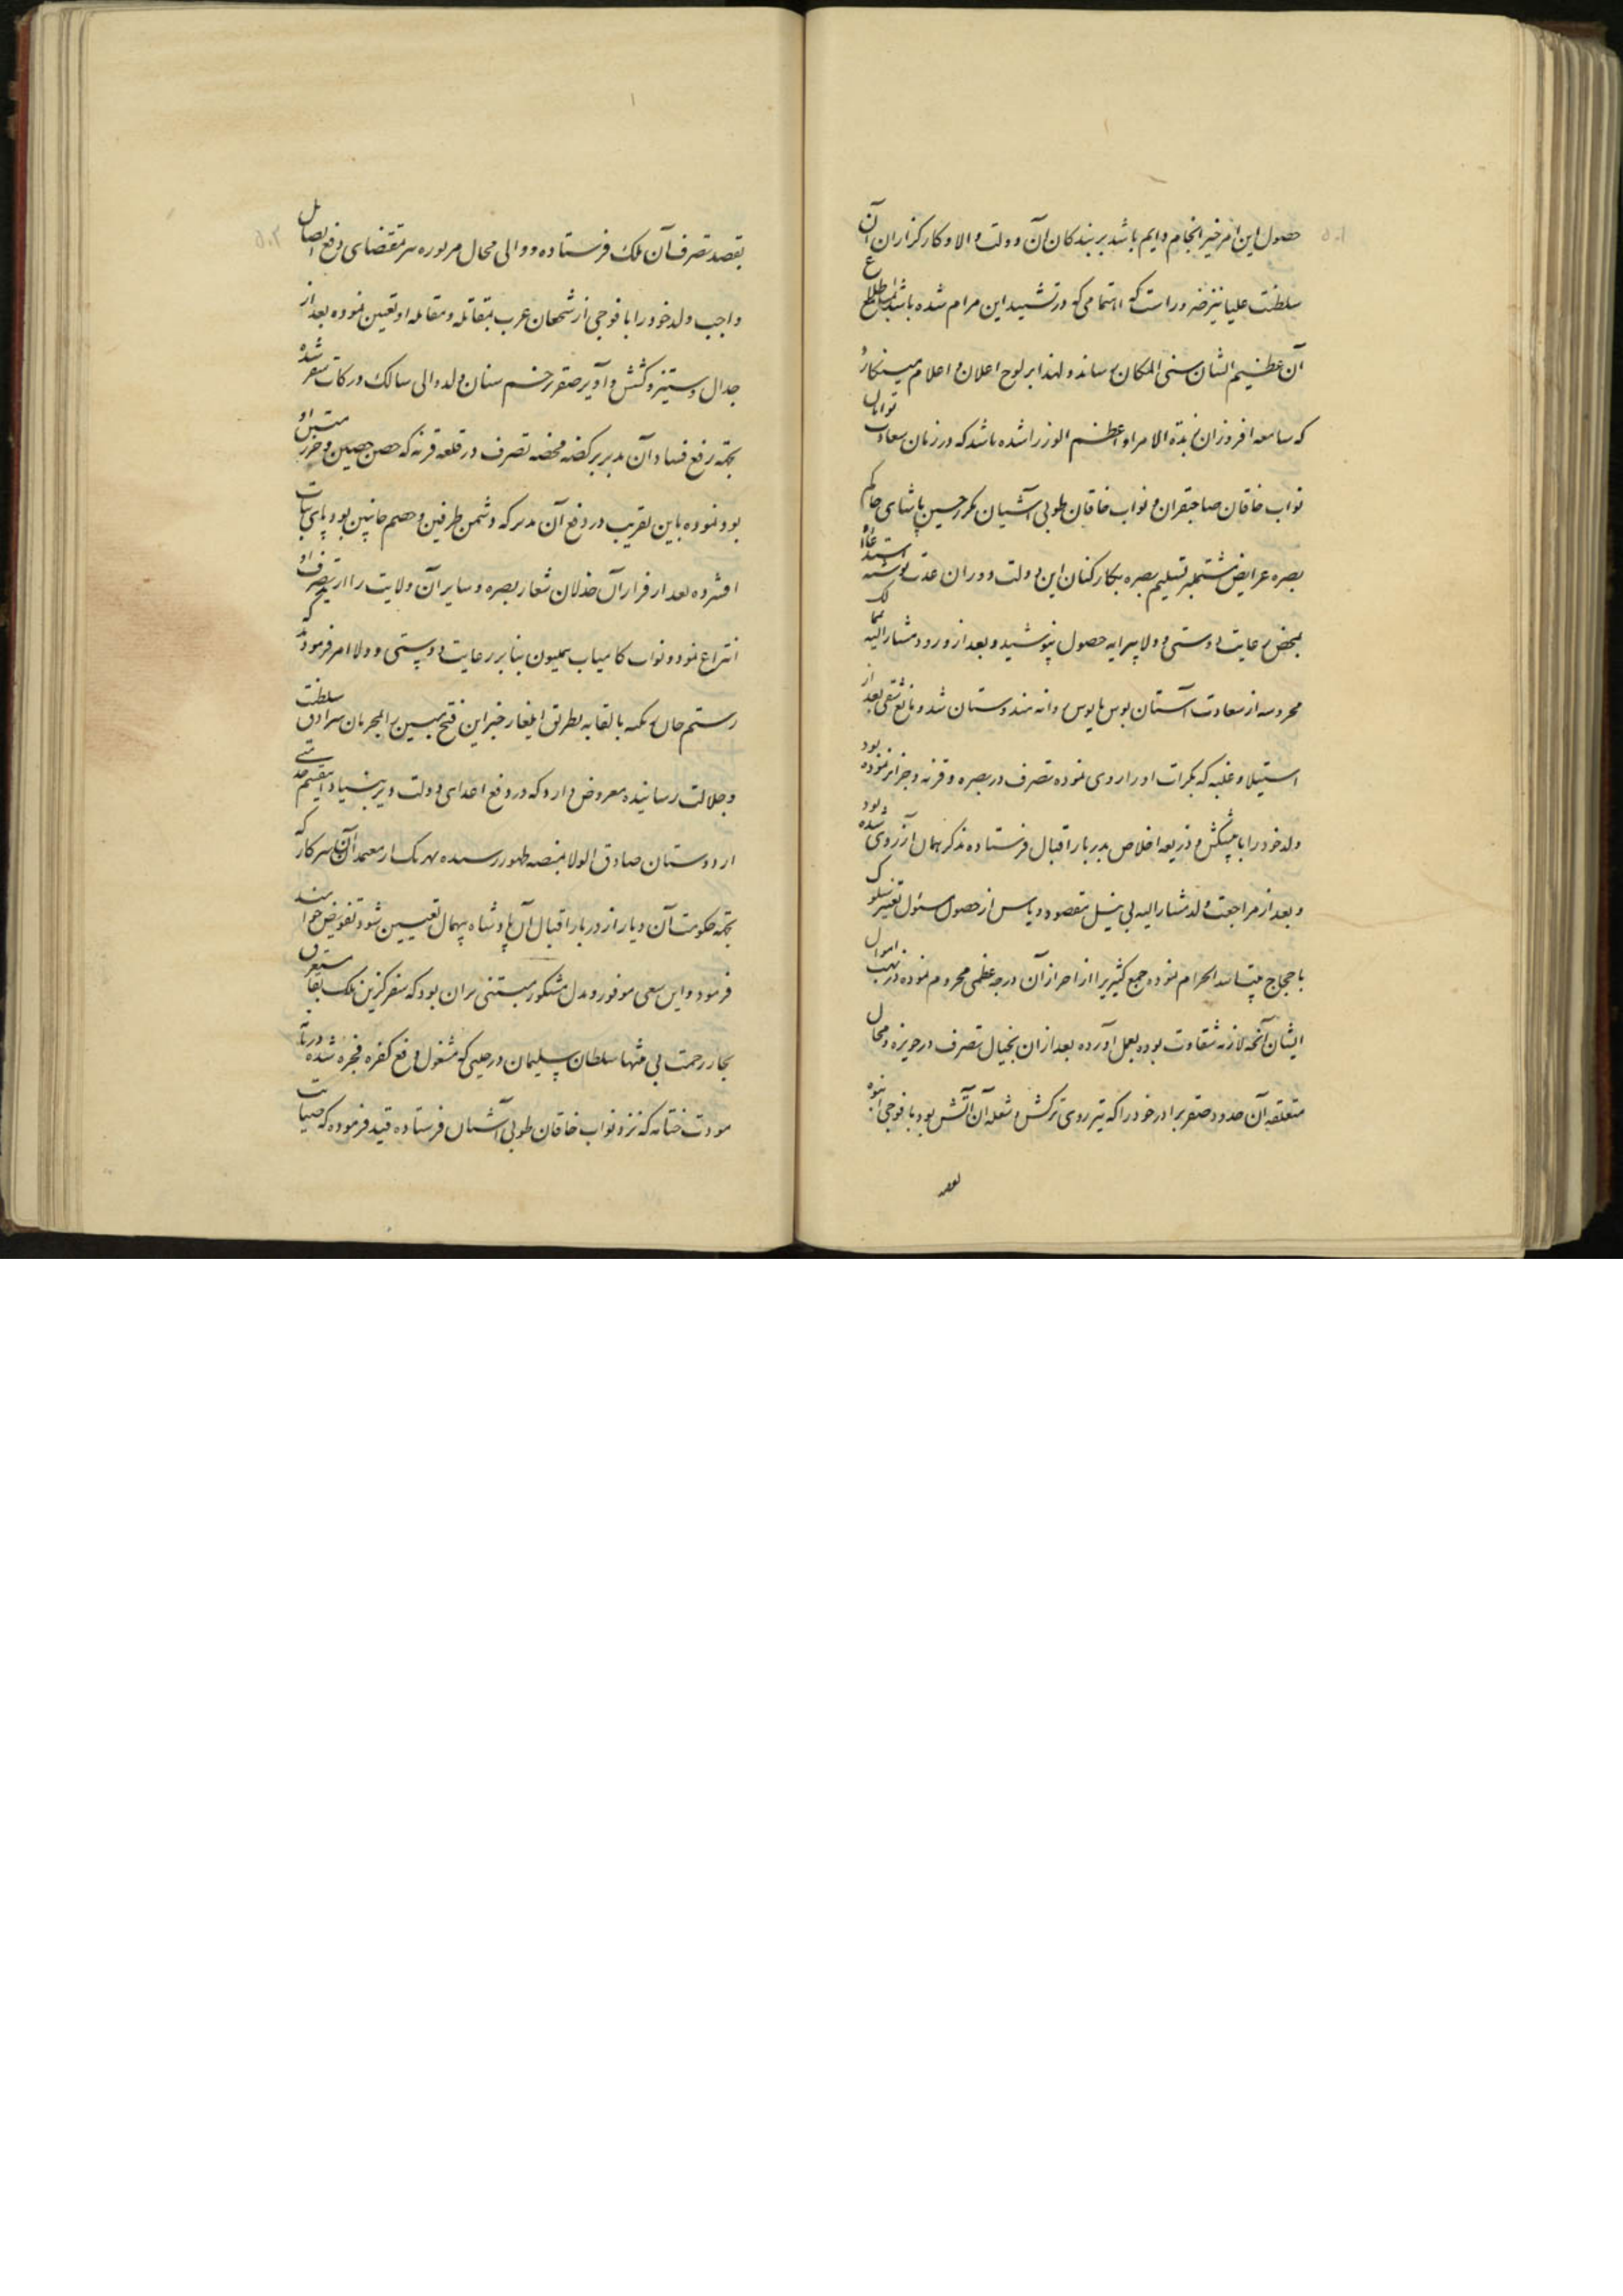 حصول این امر خیر انجام دایم باشد بر بندکان آن دولت والا و کارکزاران آن
سلطنت علیا نیز ضرور است که اهتمامی که در تشیید این مرام شده باشد باطلاع
آن عظیم الشان سنی المکان رساند و لهذا بر لوح اعلان و اعلام مینکارد
که سامعه افروز آن زبدة الامرا و اعظم الوزرا شده باشد که در زمان سعادت توامان
نواب خاقان صاحبقران و نواب خاقان طوبی آشیان مکرر حسین پاشای حاکم
بصره عرایض مشتملبر تسلیم بصره بکارکنان این دولت دوران عدت نوشته استدعاء او
بمحض رعایت دوستی و ولا پیرایه حصول نپوشید و بعد از ورود مشارالیه بممالک
محروسه از سعادت آستان بوس مایوس روانه هندوستان شد و مانع شقی بعد از
استیلا و غلبه که بکرات او را روی نموده تصرف در بصره و قرنه و جزایر نموده بود
ولد خود را با پیشکش و ذریعه اخلاص بدربار اقبال فرستاده مذکر همان آرزوی شده بود
و بعد از مراجعت ولد مشارالیه بی نیل مقصود و یاس از حصول مسئول تغییر سلوک
با حجاج بیت الله الحرام نموده جمع کثیری را از احراز آن درجه عظمی محروم نموده در نهب اموال
ایشان آنچه لازمه شقاوت بوده بعمل آورده بعد از ان بخیال تصرف در حویزه و محال
متعلقه آن حدود صقر برادر خود را که تیر روی ترکش و شعله آن آتش بود با فوجی انبوه
بقصد
بقصد تصرف آن ملک فرستاده و والی محال مزبوره بمقتضای دفع الصایل
واجب ولد خود را با فوجی از شجعان عرب بمقاتله و مقابله او تعیین نموده بعد از
جدال و ستیز و کشش و آویز صقر بزخم سنان ولد والی سالک درکات سقر شده
بجهة رفع فساد آن مدبر تصرف در قلعه قرنه که حصن حصین و حرز متین او
بود نموده باین تقریب در دفع آن مدبر که دشمن طرفین و خصم جانبین بود پای ثبات
افشرده بعد از فرار آن خذلان شعار بصره و سایر آن ولایت را از تصرف او
انتزاع نمود و نواب کامیاب همیون بنابر رعایت دوستی و ولا امر فرمودند که
رستم خان بالقابه بطریق ایلغار خبر این فتح مبین را بمحرمان سرادق سلطنت
و جلالت رسانیده معروض دارد که در دفع اعدای دولت دیر بنیاد
از دوستان صادق الولا بمنصه ظهور رسیده هر یک از معتمدان آن سرکار که
بجهة حکومت آن دیار از دربار اقبال آن پادشاه بیهمال تعیین شود تفویض خواهند
فرمود و این سعی موفور و بذل مشکور مبتنی بران بود که سفرکزین ملک بقا مستغرق
بحار رحمت بی منتها سلطان سلیمان در حینی که مشغول دفع کفره فجره شده
مودت ختامه که نزد نواب خاقان طوبی آشیان فرستاده قید فرموده که صیانت